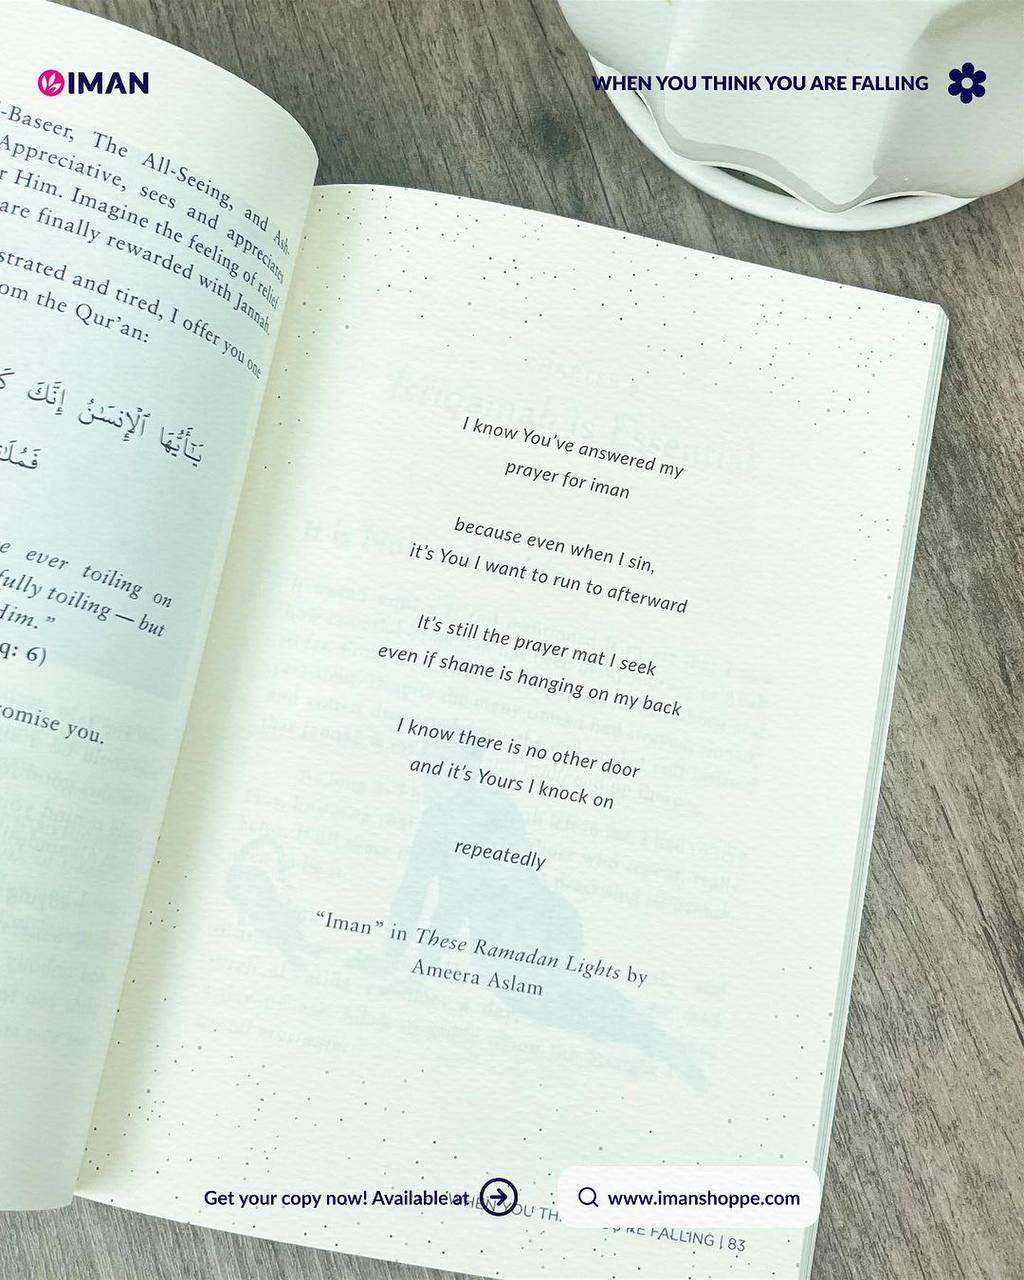 IMAN
WHEN YOU THINK YOU ARE FALLING
-Baseer, The All-Seeing, and Ash-
Appreciative, sees and appreciates
r Him. Imagine the feeling of relief
are finally rewarded with Jannah.
strated and tired, I offer you one
om the Qur'an:
يَـٰٓأَيُّهَا ٱلْإِنسَـٰنُ إِنَّكَ
فَمُلَـٰ
e ever toiling on
fully toiling — but
Him.”
q: 6)
romise you.
I know You've answered my
prayer for iman
because even when I sin,
it's You I want to run to afterward
It's still the prayer mat I seek
even if shame is hanging on my back
I know there is no other door
and it's Yours I knock on
repeatedly
“Iman” in These Ramadan Lights by
Ameera Aslam
Get your copy now! Available at
www.imanshoppe.com
WHEN YOU TH RE FALLING | 83